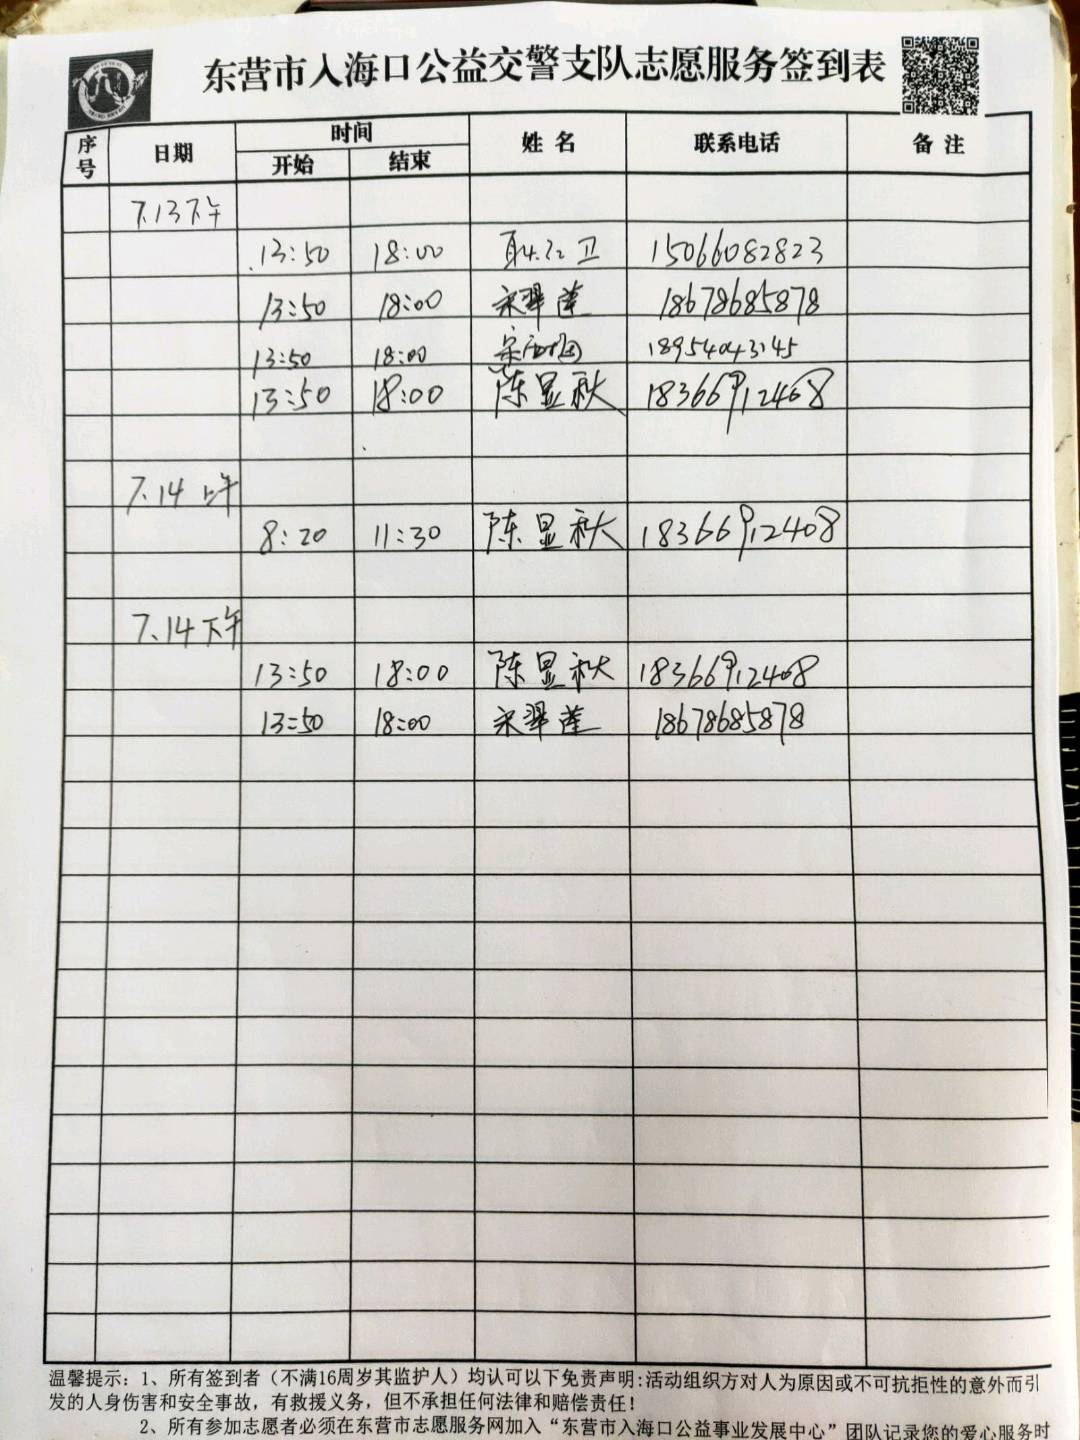 东营市入海口公益交警支队志愿服务签到表
序号 日期 时间 姓名 联系电话 备注
开始 结束
7.13下午
13:50 18:00 卫 15066082823
13:50 18:00 宋翠莲 18678685878
13:50 18:00 18954043145
13:50 18:00 陈显秋 18366912408
7.14 上午
8:20 11:30 陈显秋 18366912408
7.14下午
13:50 18:00 陈显秋 18366912408
13:50 18:00 宋翠莲 18678685878
温馨提示: 1、所有签到者（不满16周岁其监护人）均认可以下免责声明:活动组织方对人为原因或不可抗拒性的意外而引
发的人身伤害和安全事故，有救援义务，但不承担任何法律和赔偿责任!
2、所有参加志愿者必须在东营市志愿服务网加入“东营市入海口公益事业发展中心”团队记录您的爱心服务时